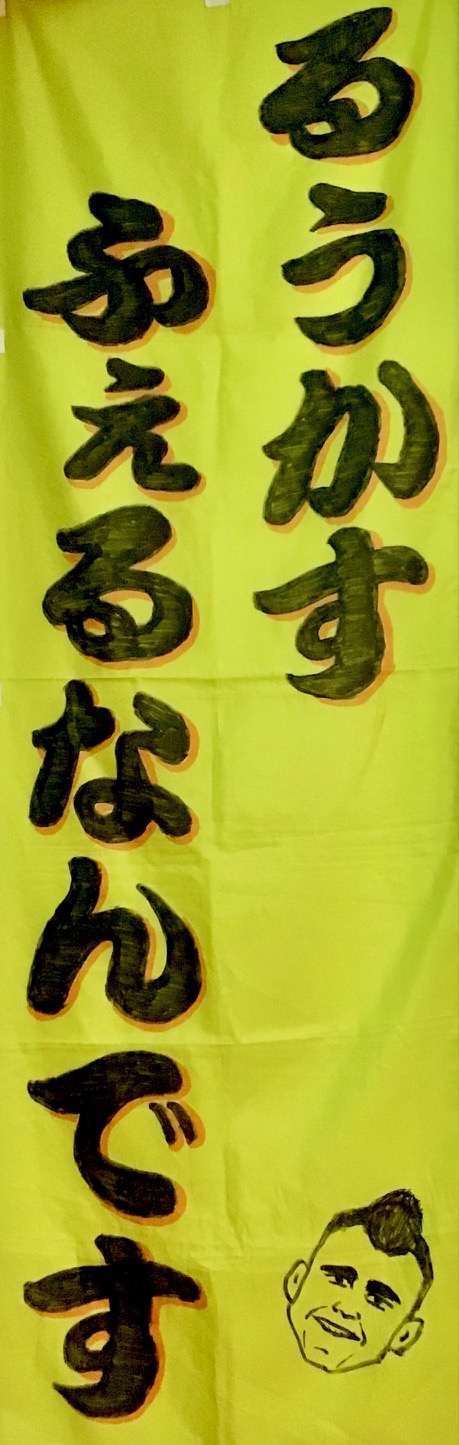 るうかす
ふえるなんです